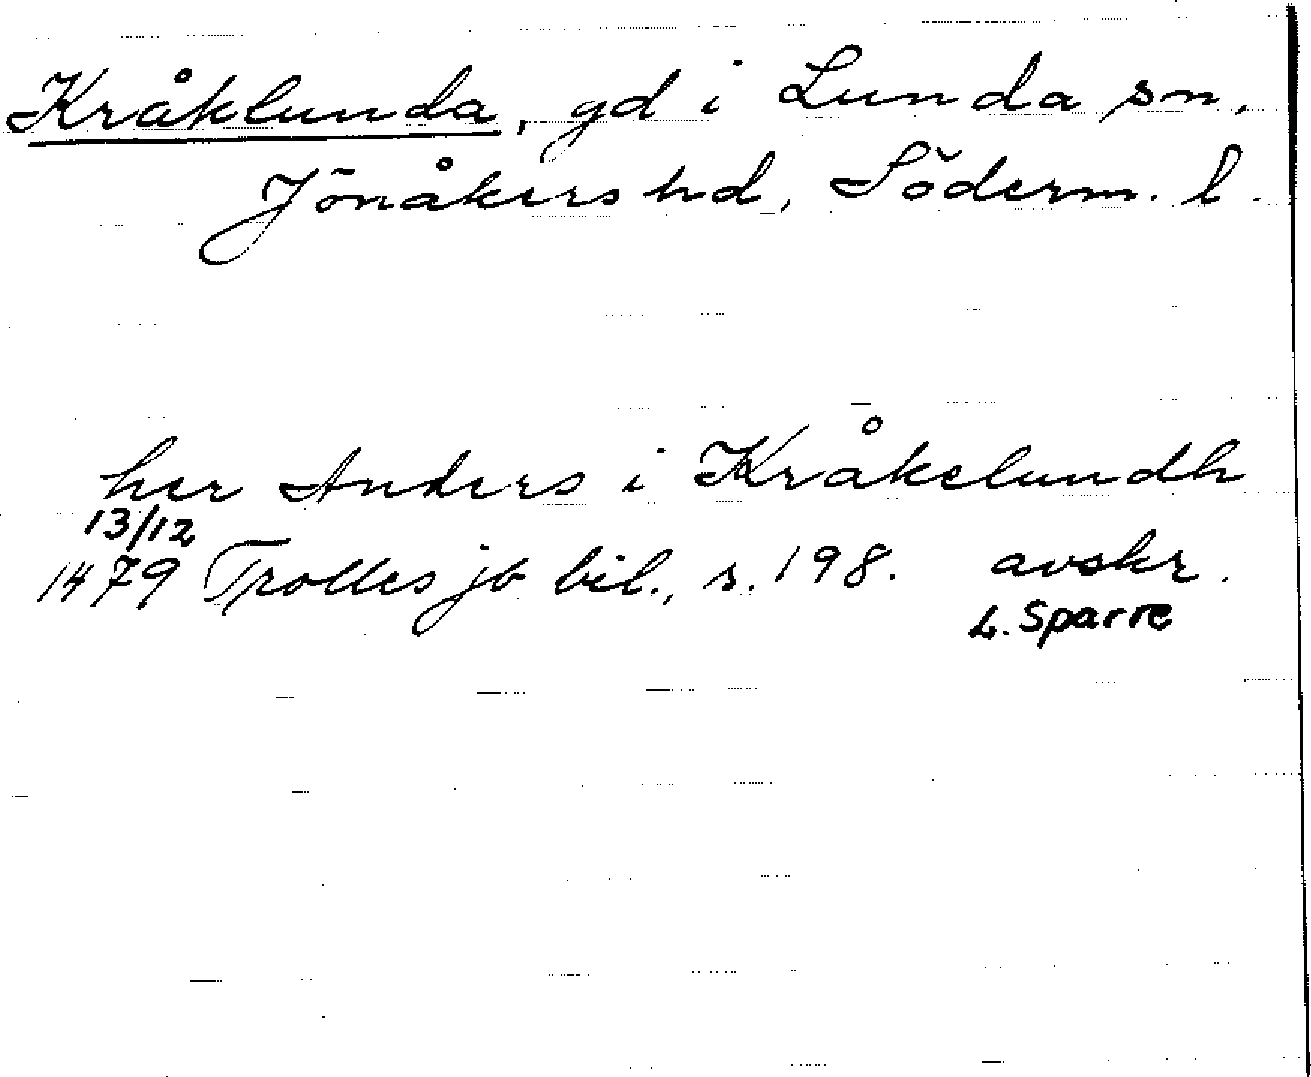 Kråklunda, gd i Lunda sn,
Jönåkers hd, Söderm. l.
her Anders i Kråkelundh
13/12
1479 Trolles jb bil., s. 198. avskr.
L. Sparre